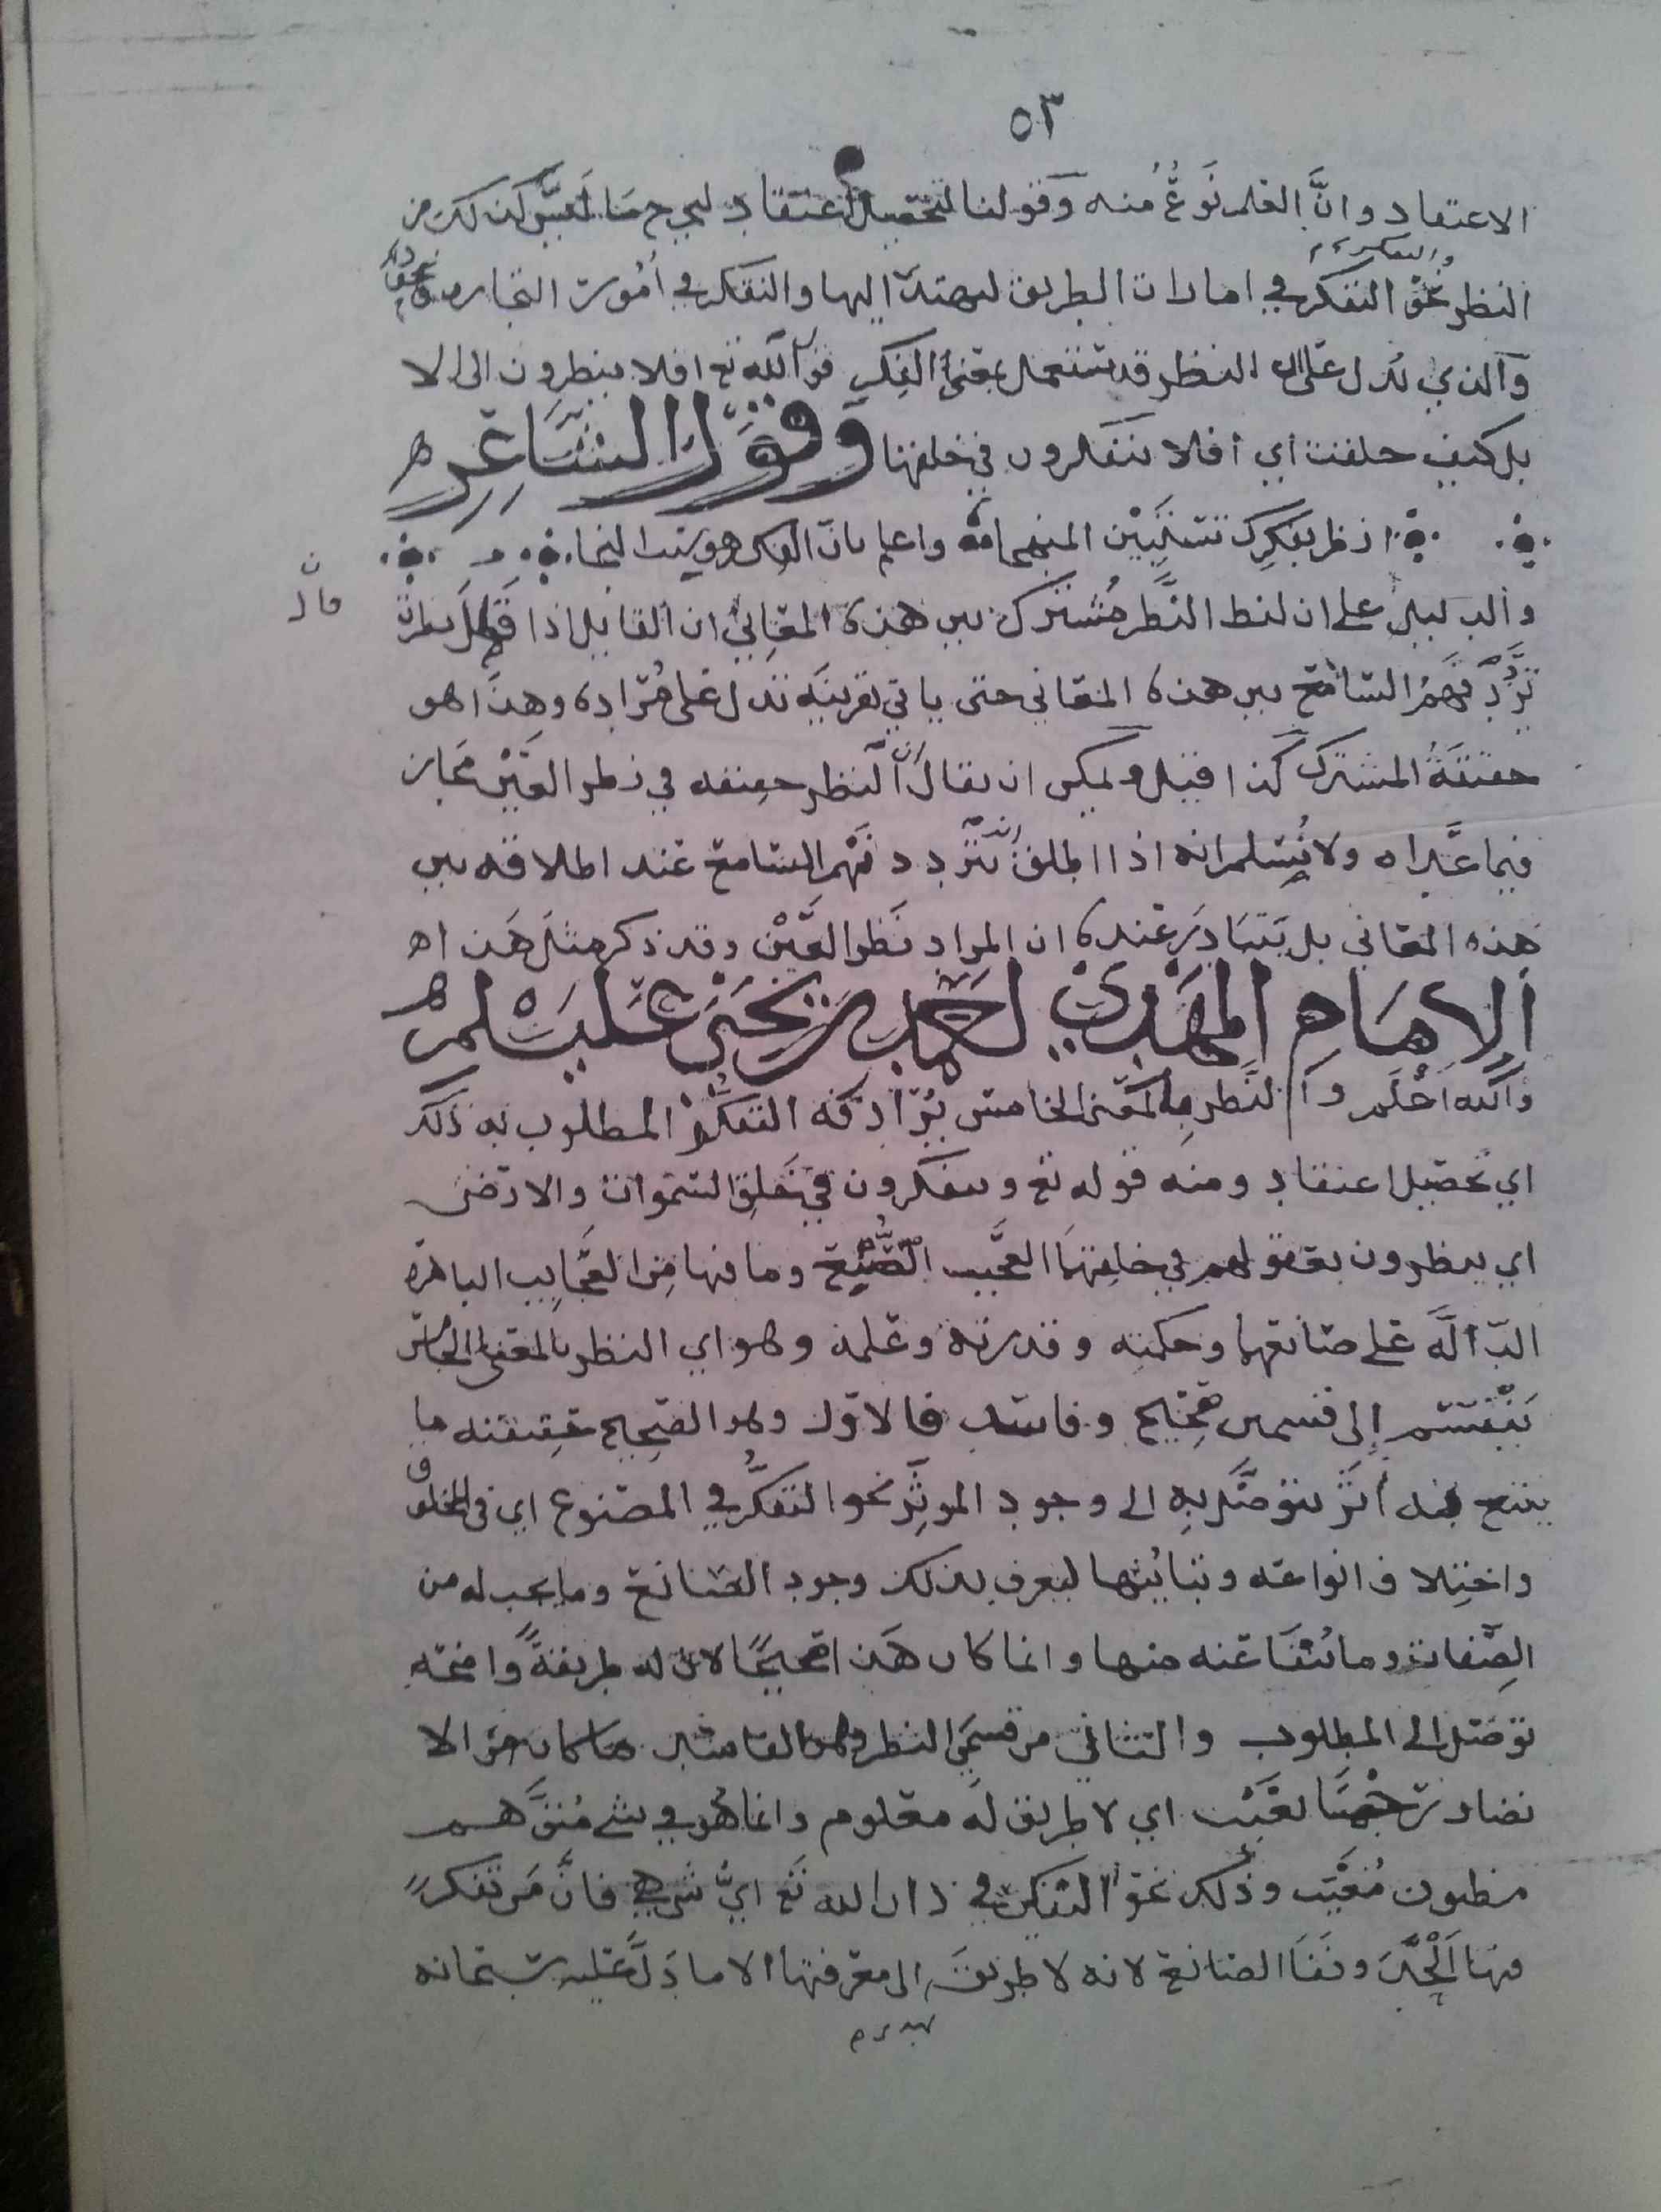 ٥٣
الاعتقاد وانَّ العلم نَوعٌ منه وقولنا لتحصيل اعتقاد ليخرج ما ليس كذلك من
النظر نحو التفكر في امارات الطريق ليهتدى اليها والتفكر في امُور التجاره ونحو
والذي يدل على ان النظر قد يستعمل بمعنى الفكر قول الله تع افلا ينظرون الى الا
بل كيف خلقت اي افلا يتفكرون في خلقها وقول الشاعر ه
انظر بفكرك تستبين المنهجا واعلم بان الفكر هو سبب النجا
قال
والدليل على ان لفظ النظر مُشترك بين هذه المعاني ان القايل اذا قال نظرت
تردّد فهم السّامع بين هذه المعاني حتى ياتي بقرينه تدل على مراده وهذا هو
حقيقة المشترك كذا قيل ويمكن ان يقال ان النظر حقيقه في نظر العين مجاز
فيما عداه ولا نُسلم انه اذا اطلق تردد فهم السامع عند اطلاقه بين
هذه المعاني بل يَتبادر عنده ان المراد نظر العين وقد ذكر مثل هذا ه
الامام المهدي احمد بن يحيى عليلم ه
والله اعلم والنظر بالمعنى الخامس يُرادفه التفكر المطلوب به ذلك
اي تحصيل اعتقاد ومنه قوله تع ويتفكرون في خلق السموات والارض
اي ينظرون بعقولهم في خلقها العجيب الصُّنع وما فيها من العجايب الباهرة
الدّالّه على صانعها وحكمته وقدرته وعلمه وهو اي النظر بالمعنى الخامس
يَنْقسم إلى قسمين صحيح وفاسد فالاول وهو الصحيح حقيقته ما
يتبع فيه أثر يتوصّل به الى وجود الموثّر نحو التفكر في المصنوع اي في المخلوق
واختلاف انواعه وتبايُنها ليعرف بذلك وجود الصانع وما يجب له من
الصّفات وما يُنفا عنه منها وانما كان هَذا صحيحًا لان له طريقةً واضحه
توصّل الى المطلوب والثاني من قسمي النظر وهو الفاسد ما كان من الا
نضار ترجْمًا بغَيْب اي لا طريق له معلوم وانما هو في شي مُتوَّهم
مظنون مُغيَّب وذلك نحو التفكر في ذات الله تع ايُّ شي هي فانَّ مَن تفكر
فيها الْحدَ ونفا الصانع لانه لا طريق الى معرفتها الا ما دَلَّ عليه سبحانه